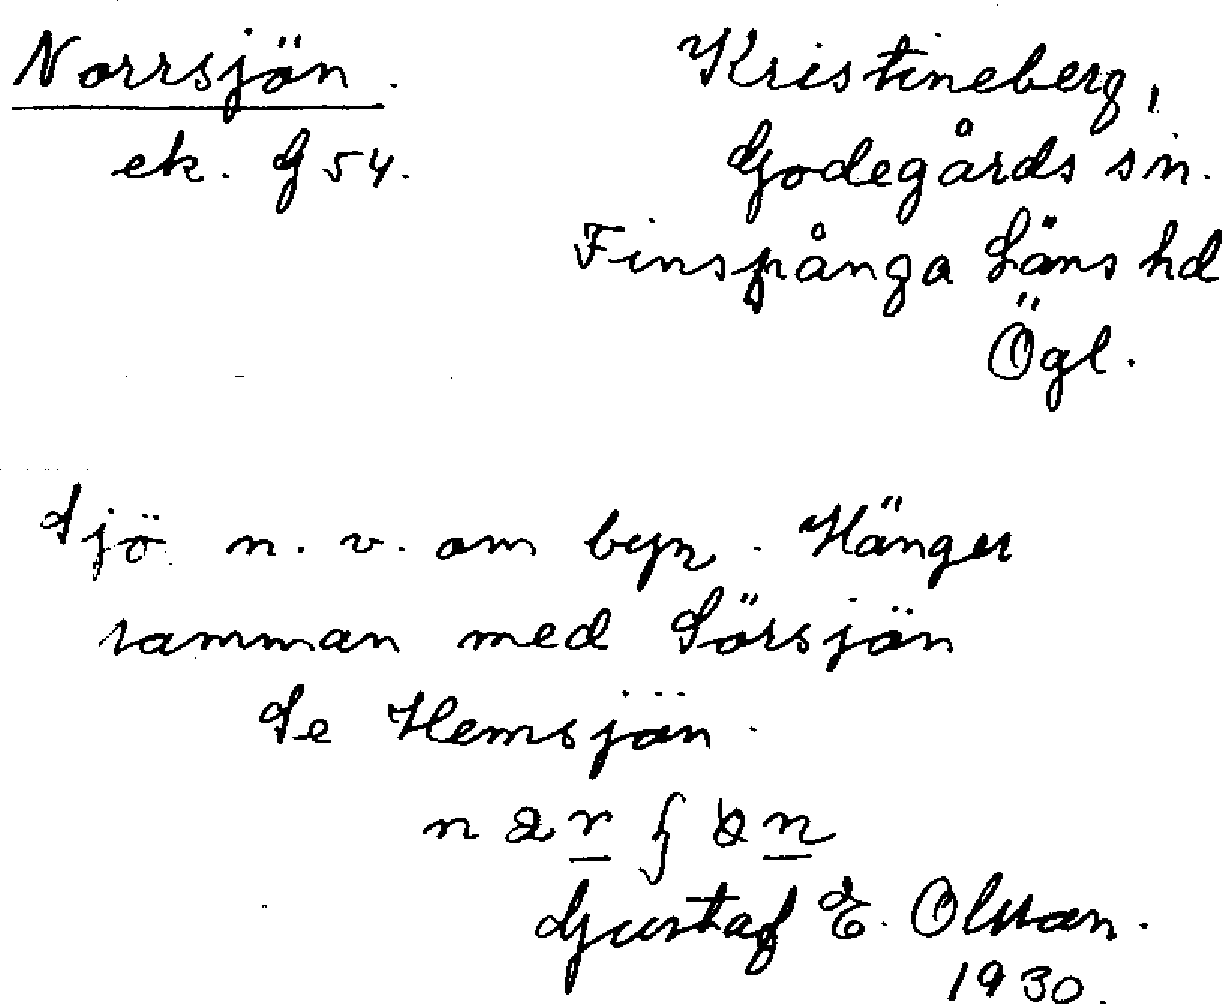 Norrsjön.
ek. G 54.
Kristineberg,
Godegårds sn.
Finspånga Läns hd
Ögl.
Sjö n. v. om byn. Hänger
samman med Sörsjön
Se Hemsjön.
Gustaf E. Olsson.
1930.